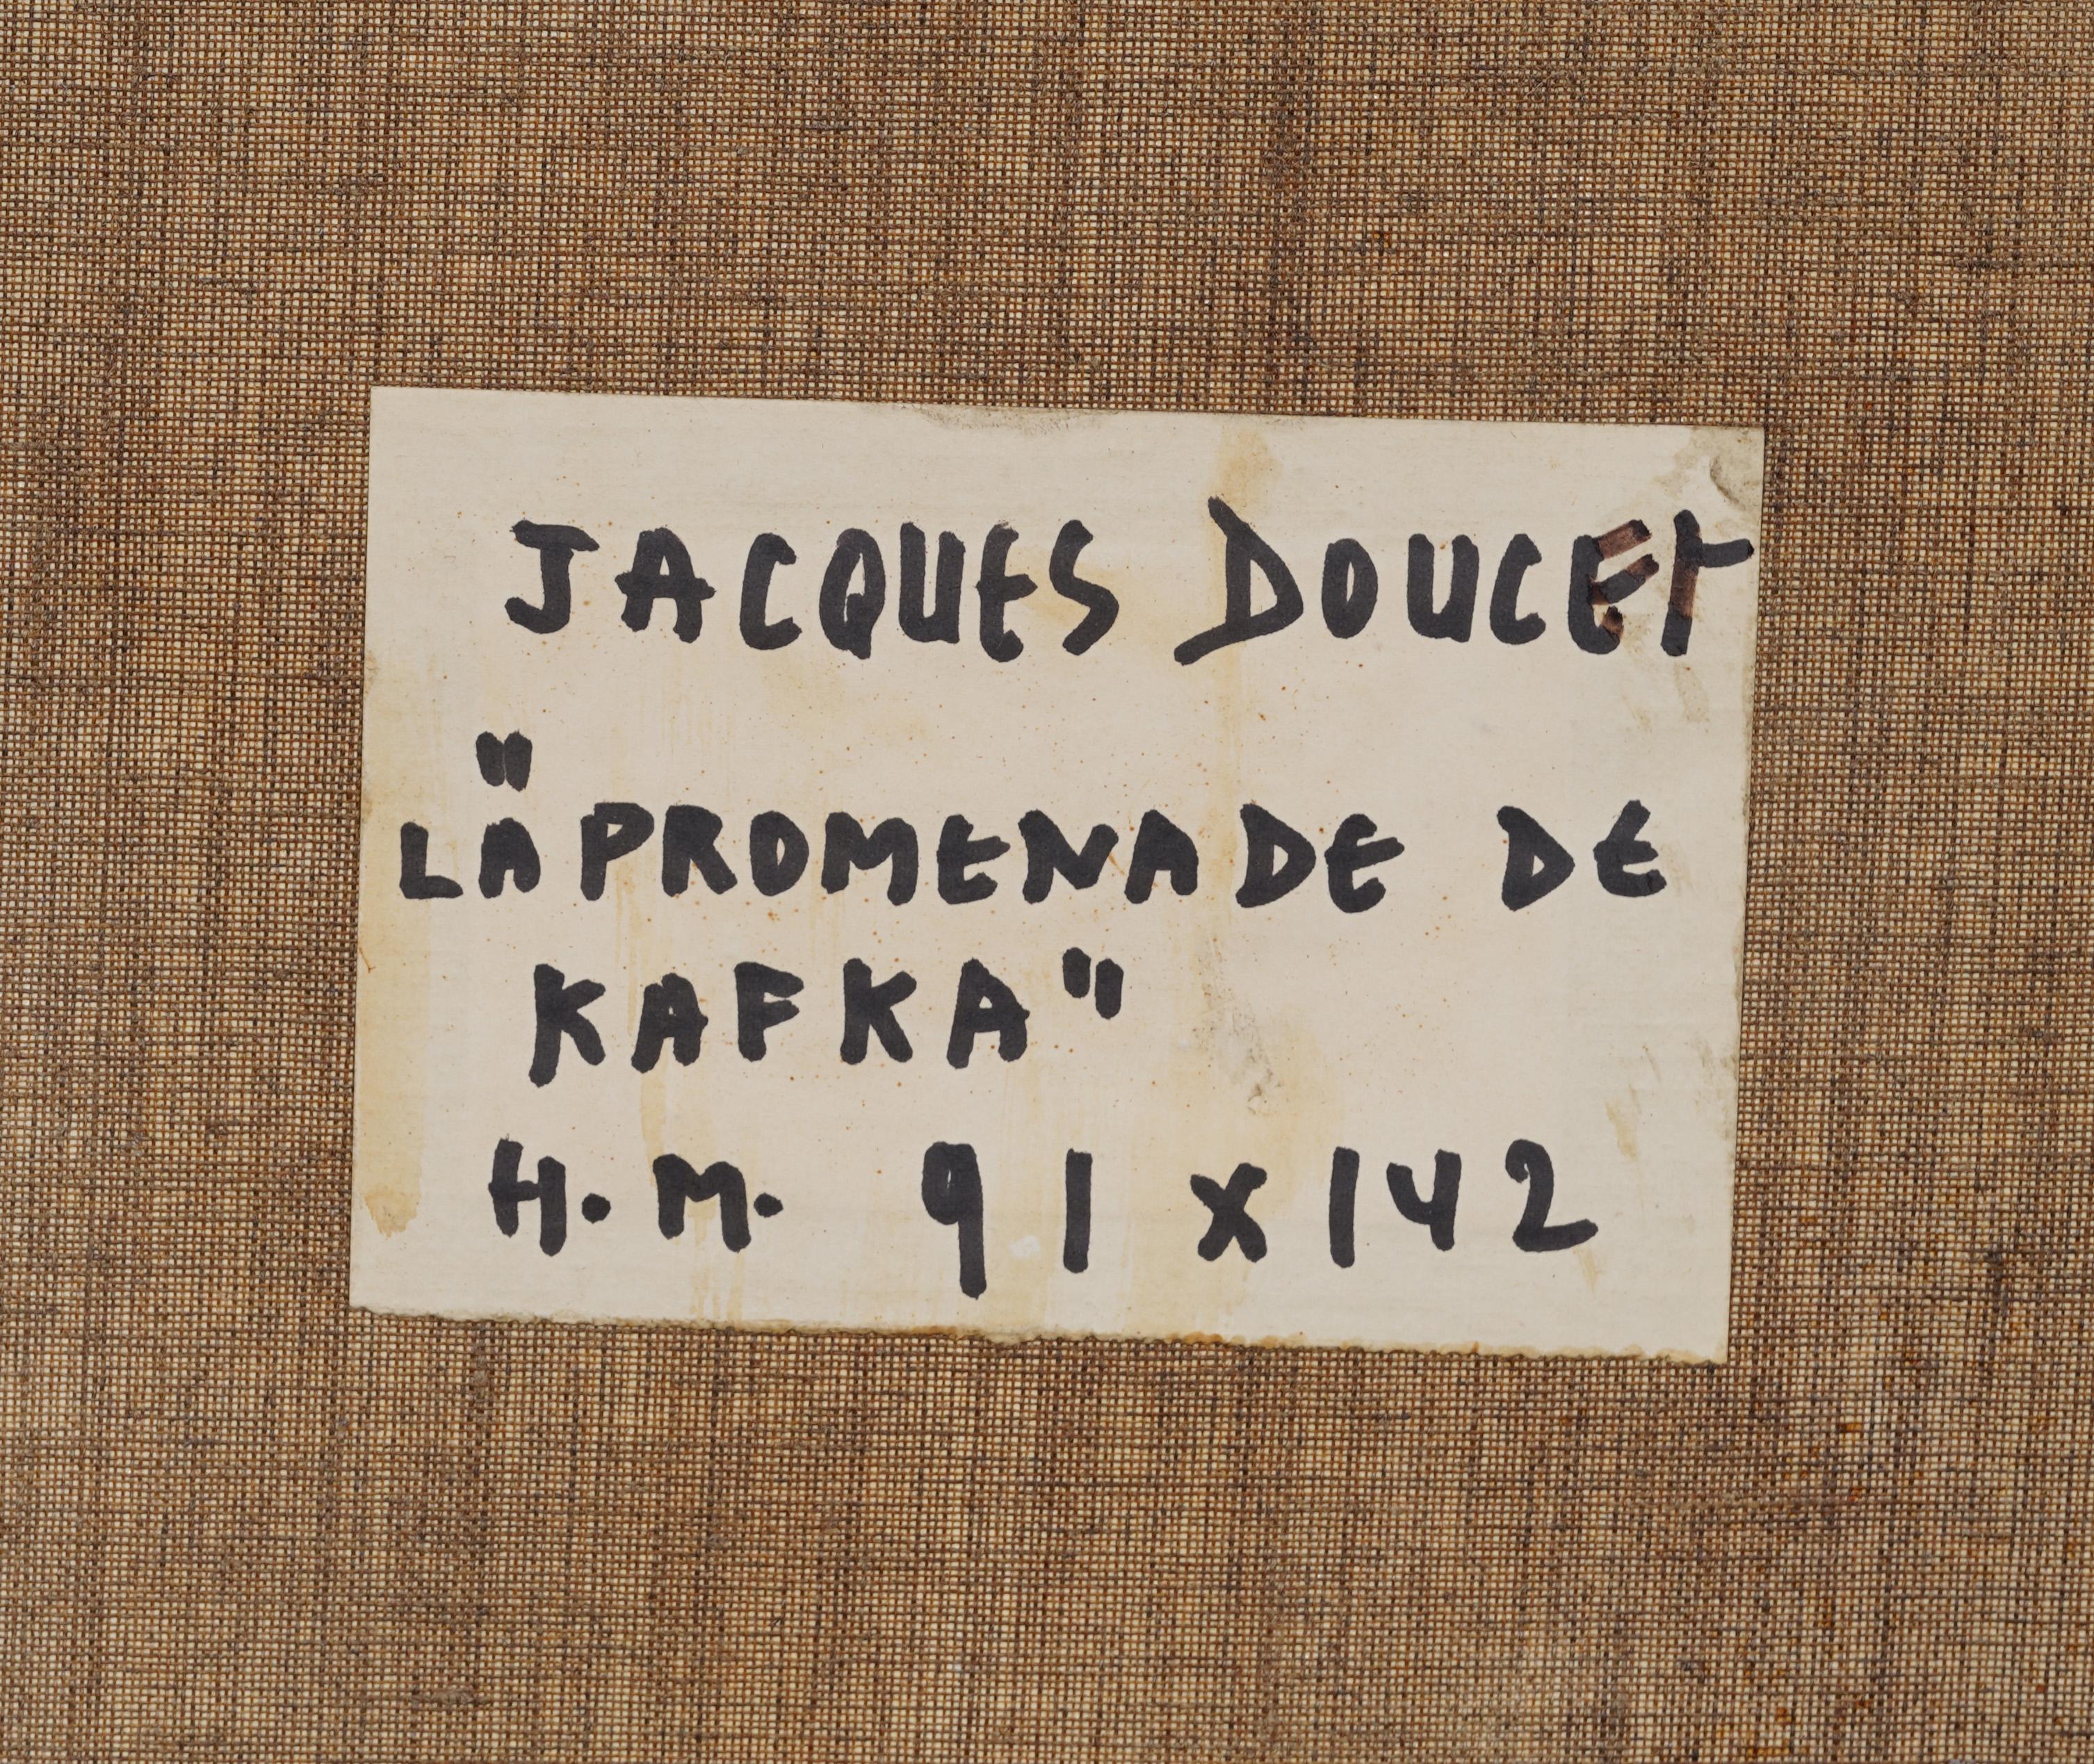 JACQUES DOUCET
"
LA PROMENADE DE
KAFKA"
H.M. 91 x 142